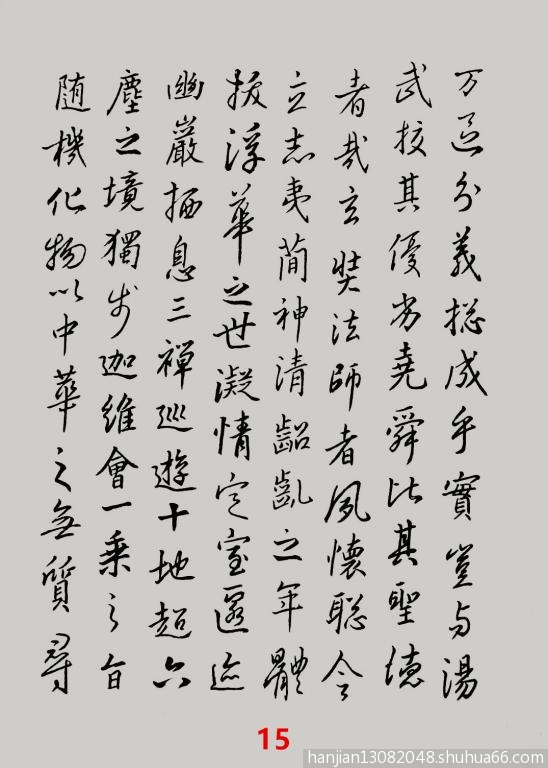 万區分義揔成乎實豈与湯
武校其優劣堯舜比其聖徳
者哉玄奘法師者夙懷聡令
立志夷蕳神清齠齔之年體
拔浮華之世凝情定室匿迹
幽巖栖息三禪巡遊十地超六
塵之境獨步迦維會一乘之旨
随機化物以中華之無質尋
15
hanjian13082048.shuhua66.com